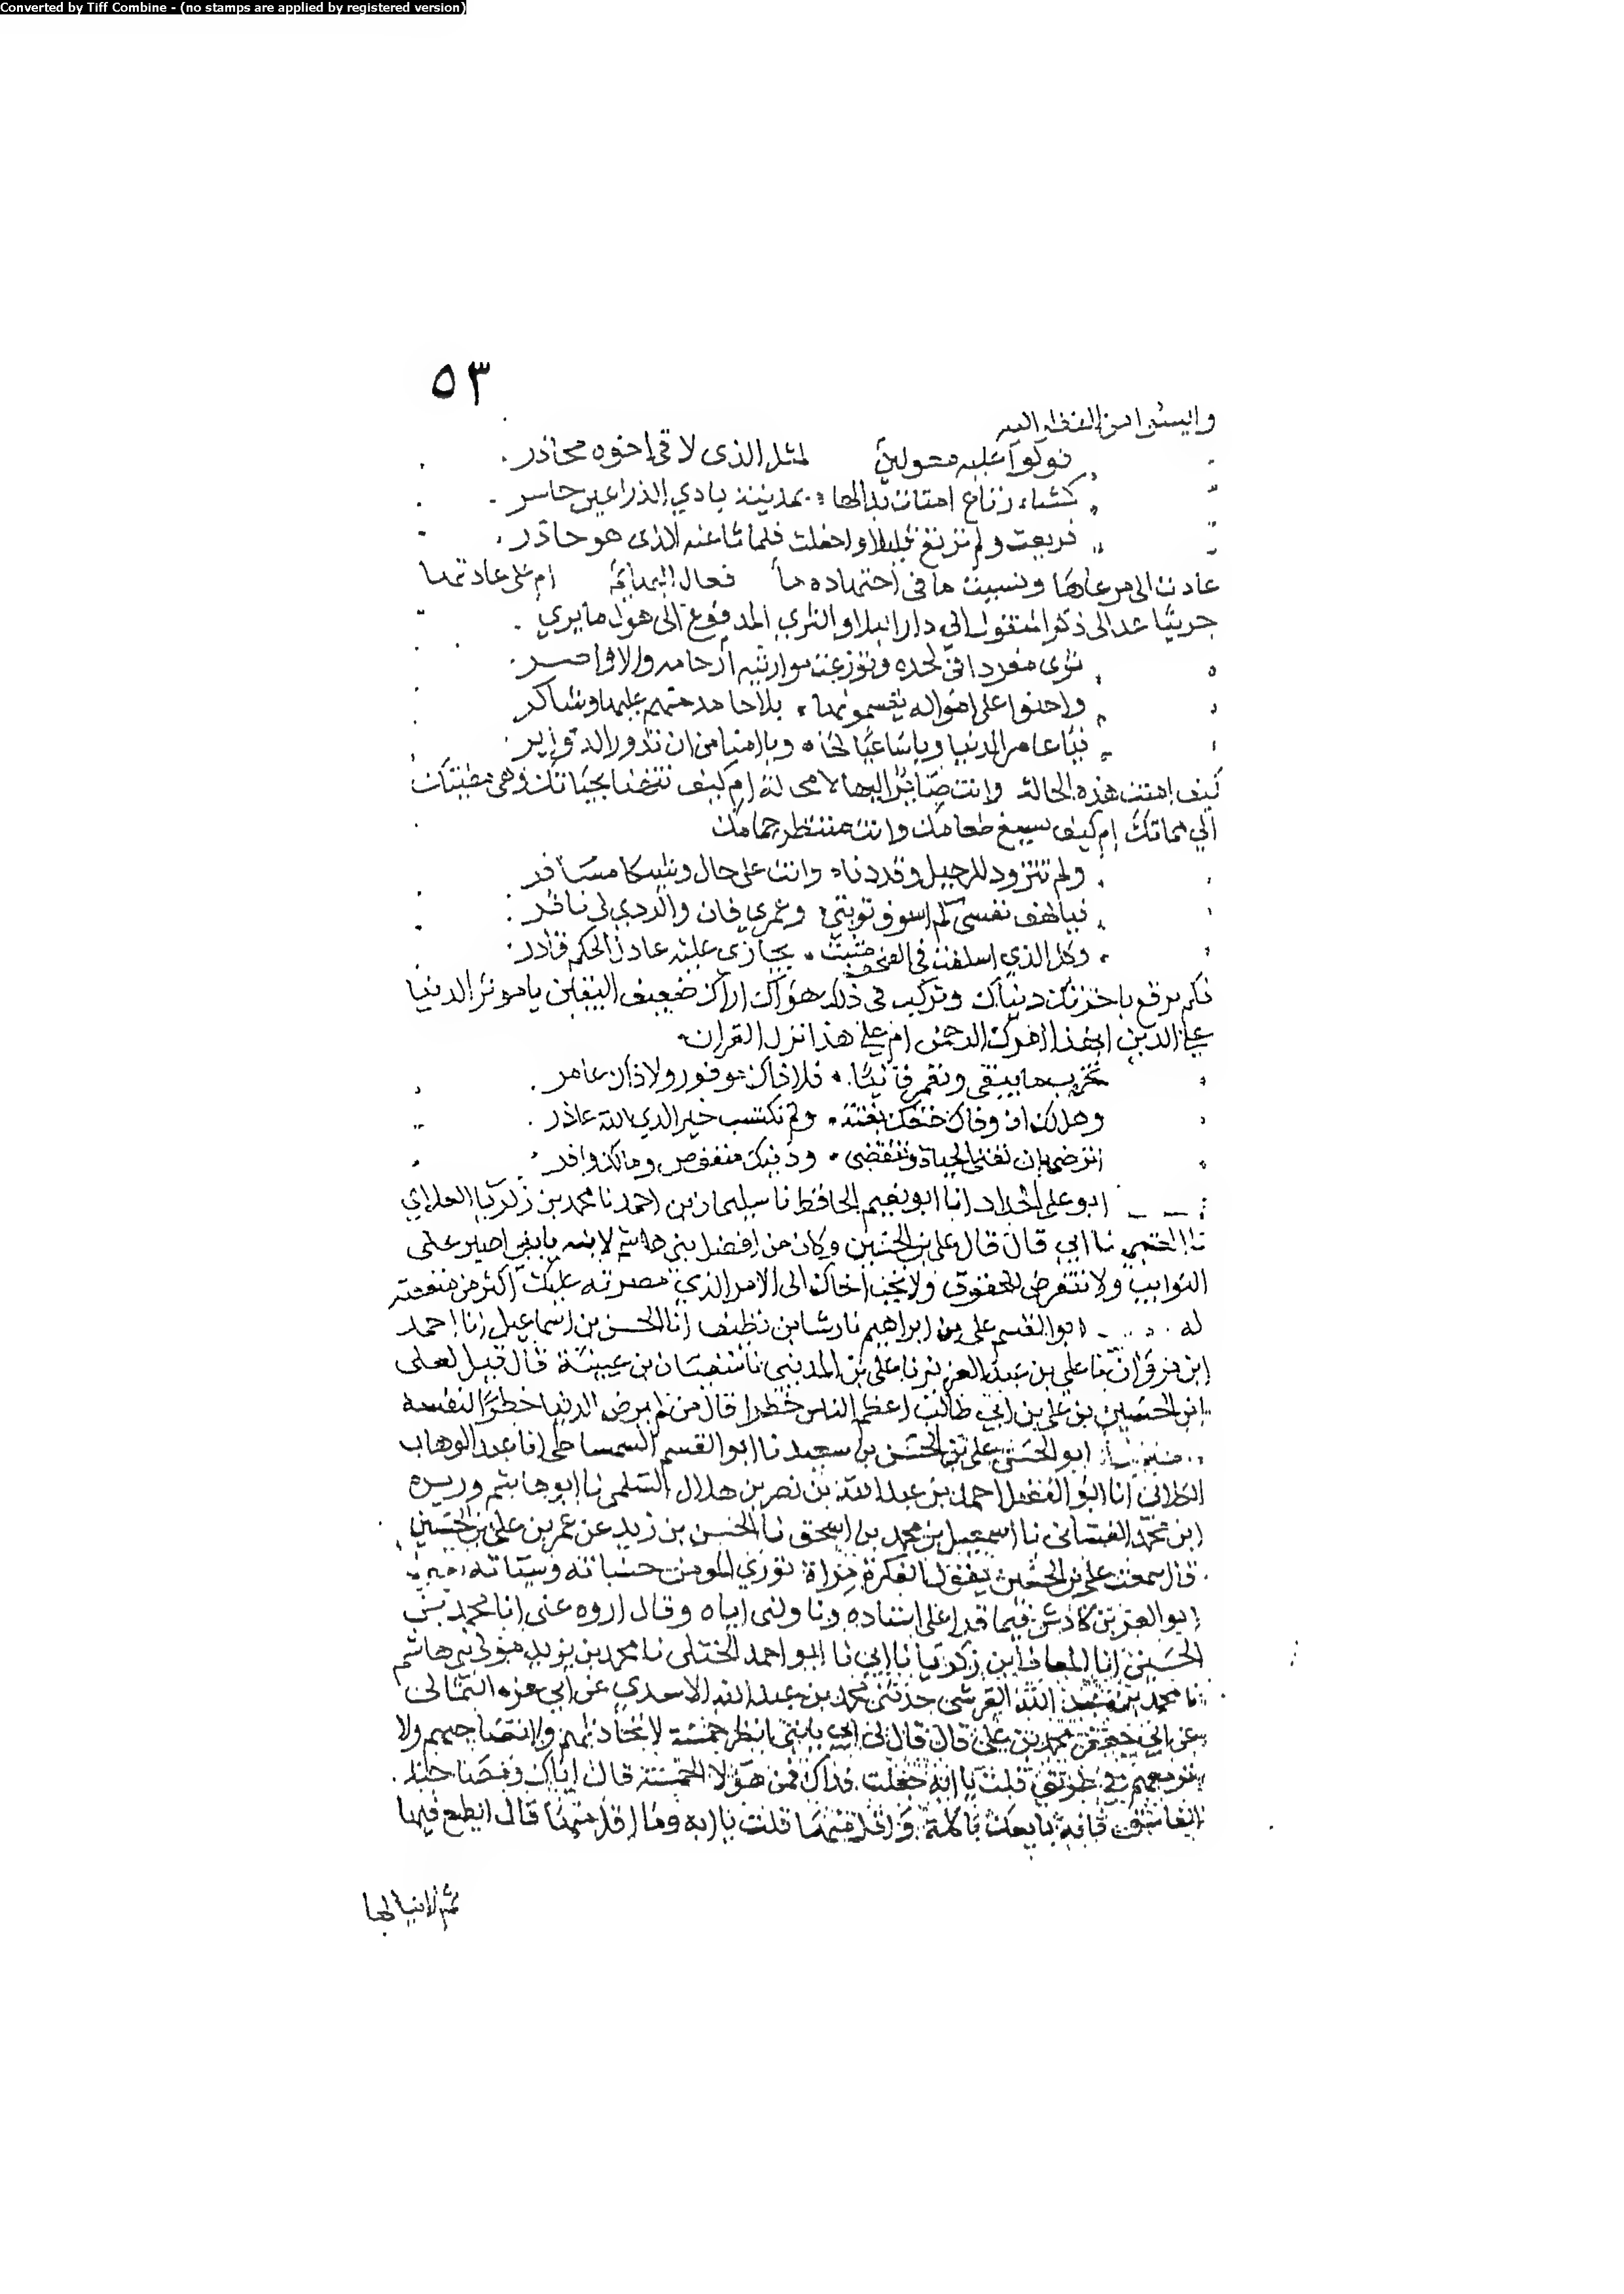 Converted by Tiff Combine - (no stamps are applied by registered version)
٥٣
وايسوا من النظر اليه
فولوا عليه معولين لمثل الذي لاقى اخوه محاذر
كشاء رتاع امنات بدالها بمدينة بادي الذراعين حاسر
فريعت ولم ترتع قليلا واجفلت فلما نا عنه الذي هو حاذر
عادت الى مرعاها ونسيت ما في اختها دها افعال البهائم ام على عادتها
جرينا عد الى ذكر المنقول الى دار البلا والثرى المدفوع الى هول ما يرى
ثوى مفردا في لحده وتوزعت مواريثه ارحامه والاواصر
واحنوا على امواله يقسمونها بلا حامد منهم عليها وشاكر
فيا عامر الدنيا ويا ساعيا لها ويا امنا من ان تدور الدوائر
كيف امنت هذه الحالة وانت صائر اليها لا محالة ام كيف تتهنا بحياتك وهي مطيتك
الى مماتك ام كيف تسيغ طعامك وانت منتظر حمامك
ولم تتزود للرحيل وقد دنا وانت على حال وشيكا مسافر
فيا لهف نفسي كم اسوف توبتي وعمري فان والردي لي ناظر
وكل الذي اسلفت في الصحف مثبت يجازي عليه عادل الحكم قادر
فكم ترقع باخرتك دنياك وتركب في ذلك هواك اراك ضعيف اليقين يا موثر الدنيا
على الدين ابهذا امرك الرحمن ام على هذا نزل القران
تخرب ما يبقى وتعمر فانيا فلا ذاك موفور ولا ذاك عامر
وهل لك ان وفاك حتفك بغتة ولم تكتسب خيرا لدي الله عاذر
اترضى بان تفنى الحياة وتنقضي ودينك منقوص ومالك وافر
ابو علي الحداد انا ابو نعيم الحافظ نا سليمان بن احمد نا محمد بن زكريا العلاي
نا العتبي نا ابي قال قال علي بن الحسين وكان من افضل بني هاشم لابنه يا بني اصبر على
النوايب ولا تتعرض للحقوق ولا تجب اخاك الى الامر الذي مضرته عليك اكثر من منفعته
له ابو القسم علي بن ابراهيم نا رشا بن نظيف انا الحسن بن اسماعيل انا احمد
ابن مروان نا علي بن عبد العزيز نا علي بن المديني نا سفيان بن عيينة قال قيل لعلي
ابن الحسين بن علي بن ابي طالب من اعظم الناس خطرا قال من لم يرض الدنيا خطرا لنفسه
ابو الحسن علي بن الحسن بن سعيد نا ابو القسم السمساطي انا عبد الوهاب
الكلابي انا ابو الفضل احمد بن عبد الله بن نصر بن هلال السلمي نا ابو هاشم وريره
ابن محمد الغساني نا اسمعيل بن محمد بن اسحق نا الحسن بن زيد عن عمر بن علي بن الحسين
قال سمعت علي بن الحسين يقول الفكرة مراة توري المومن حسناته وسيئاته
ابو العز بن كادش فيما قرا علي اسناده وناولني اياه وقال اروه عني انا محمد بن
الحسين انا المعافا ابن زكريا نا ابي نا ابو احمد الختلي نا محمد بن يزيد مولى بني هاشم
نا محمد بن عبد الله القرشي حدثني محمد بن عبد الله الاسدي عن ابي حمزه الثمالي
عن ابي جعفر محمد بن علي قال قال لي ابي يا بني انظر خمسة لا تحادثهم ولا تصاحبهم ولا
ترى معهم في طريق قلت يا ابه جعلت فداك فمن هولا الخمسة قال اياك ومصاحبة
الفاسق فانه بايعك باكلة واقل منها قلت يا ابه وما اقل منها قال الطمع فيها
ثم لا ينالها